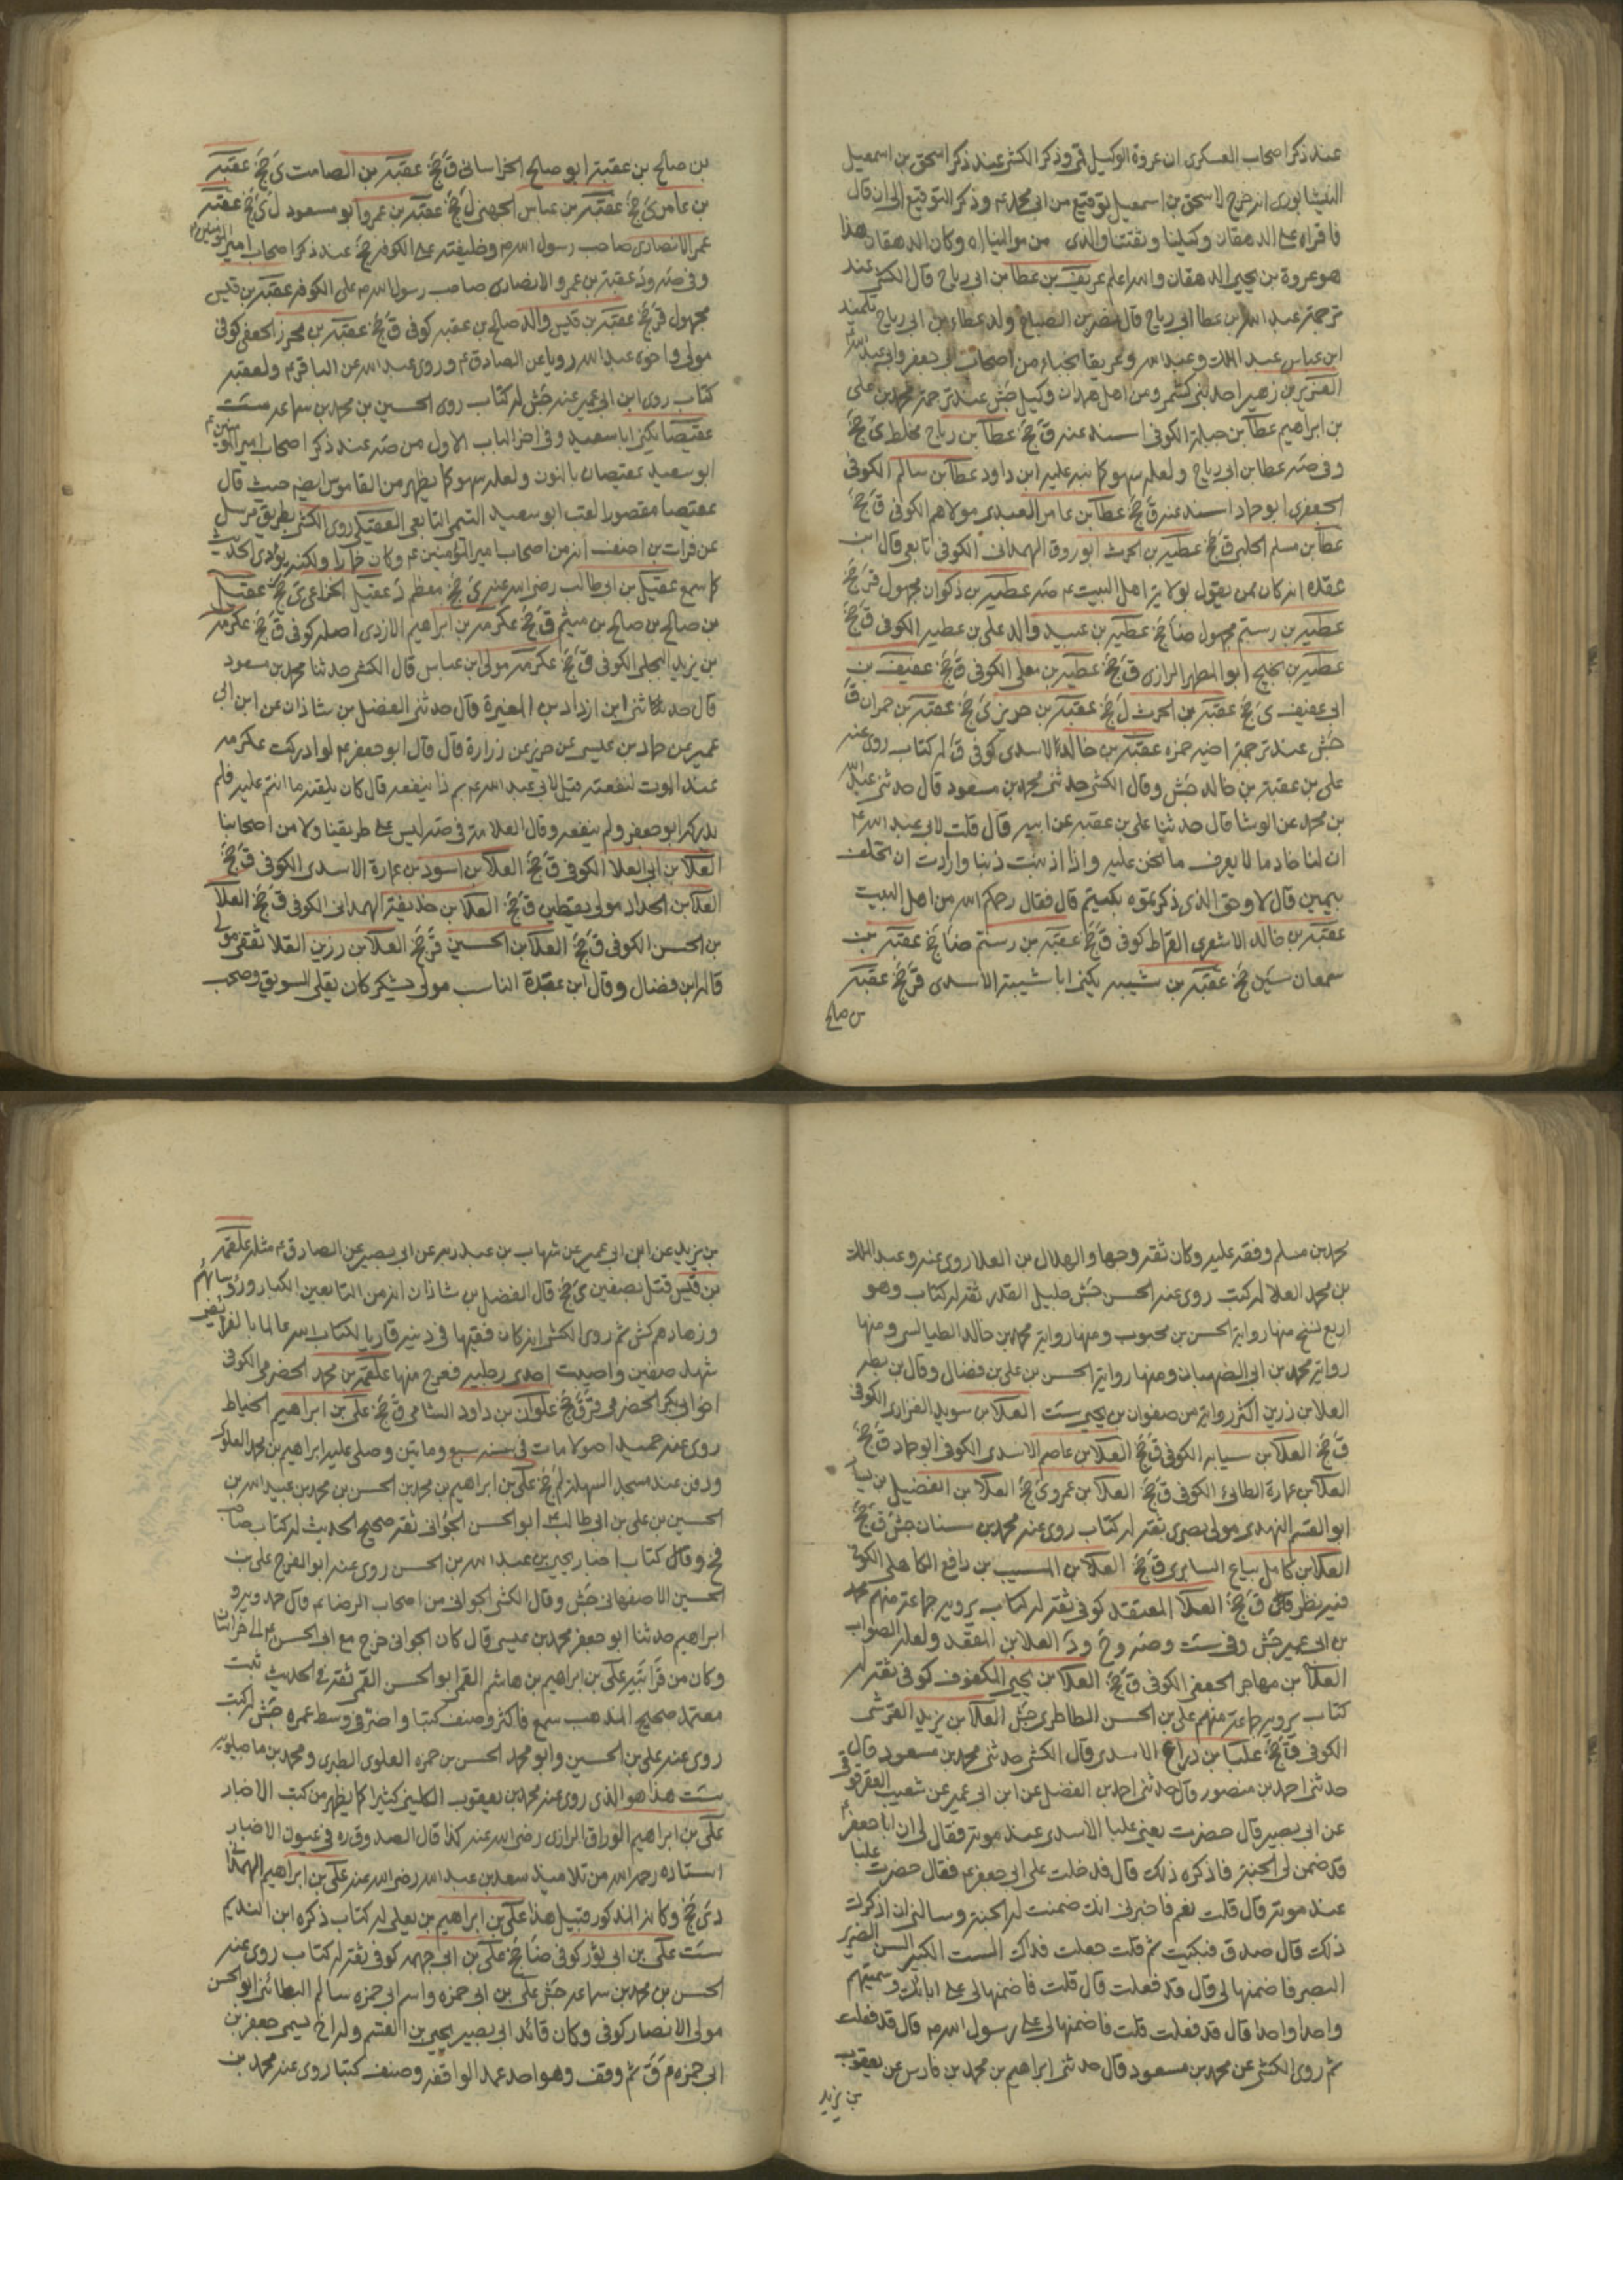 عند ذكر اصحاب العسكرى ان عروة الوكيل قمى وذكر الكشى عند ذكر اسحق بن اسمعيل
النيشابورى انه خرج لاسحق بن اسمعيل توقيع من ابى محمد ع وذكر التوقيع الى ان قال
فاقراه على الدهقان وكيلنا وثقتنا والذى من موالينا اه وكان الدهقان هذا
هو عروة بن يحيى الدهقان والله اعلم عريف بن عطا بن ابى رباح قال الكشى عند
ترجمة عبد الله بن عطا ابى رباح قال نصر بن الصباح ولد عطاء بن ابى رباح تلميذ
ابن عباس عبد الملك وعبد الله وعريفا نجباء من اصحاب ابى جعفر وابى عبد الله ع
العزيز بن زهير احد بنى كشمر ومن اهل همدان وكيل جش عند ترجمة محمد بن على
بن ابراهيم عطا بن جبلة الكوفى اسند عنه ق جخ عطا بن رباح مخلط ى جخ
وفى صه عطا بن ابى رباح ولعله سهو كما نبه عليه ابن داود عطا بن سالم الكوفى
الجعفرى ابو حماد اسند عنه ق جخ عطا بن عامر العبدى مولاهم الكوفى ق جخ
عطا بن مسلم الحلبى ق جخ عطية بن الحرث ابو روق الهمدانى الكوفى تابعى قال ابن
عقده انه كان ممن يقول بولاية اهل البيت ع صه عطية بن ذكوان مجهول قر جخ
عطية بن رستم مجهول ضا جخ عطية بن عبيد والد على بن عطية الكوفى ق جخ
عطية بن نجيح ابو المطهر الرازى ق جخ عطية بن معلى الكوفى ق جخ عفيف بن
ابى عفيف ى جخ عقبة بن الحرث ل جخ عقبة بن حريز ى جخ عقبة بن حمران ق
جش عند ترجمة اخيه حمزه عقبة بن خالد الاسدى كوفى ق له كتاب روى عنه
على بن عقبة بن خالد جش وقال الكشى حدثنى محمد بن مسعود قال حدثنى عبد الله
بن محمد عن الوشا قال حدثنا على بن عقبه عن ابيه قال قلت لابى عبد الله ع
ان لنا خادما لا يعرف ما نحن عليه واذا اذنبت ذنبا وارادت ان تحلف
بيمين قال لا وحق الذى ذكرتموه بكيتم قال فقال رحمكم الله من اهل البيت
عقبة بن خالد الاشعرى القماط كوفى ق جخ عقبة بن رستم ضا جخ عقبة بن
سمعان سين جخ عقبة بن شيبه يكنى ابا شيبة الاسدى قر جخ عقبة
بن صالح
بن صالح بن عقبة ابو صالح الخراسانى ق جخ عقبة بن الصامت ى جخ عقبة
بن عامر ى جخ عقبة بن عباس الجهنى ل جخ عقبة بن عمرو ابو مسعود ل ى جخ عقبة
عمر الانصارى صاحب رسول الله ص وخليفته على الكوفه جخ عند ذكر اصحاب امير المؤمنين ع
وفى صه ود عقبة بن عمرو الانصارى صاحب رسول الله ص على الكوفه عقبة بن قيس
مجهول قر جخ عقبة بن قيس والد صالح بن عقبه كوفى ق جخ عقبة بن محرز الجعفى كوفى
مولى واخوه عبد الله رويا عن الصادق ع وروى عبد الله عن الباقر ع ولعقبه
كتاب روى ابن ابى عمير عنه جش له كتاب روى الحسين بن محمد بن سماعه ست
عقيصا يكنى ابا سعيد وفى اخر الباب الاول من صه عند ذكر اصحاب امير المؤمنين ع
ابو سعيد عقيصان بالنون ولعله سهو كما يظهر من القاموس ايضه حيث قال
عقيصا مقصورا لقب ابو سعيد التيمى التابعى العقيلى روى الكشى بطريق مرسل
عن فرات بن احنف انه من اصحاب امير المؤمنين ع وكان خمارا ولكنه يؤدى الحديث
كما سمع عقيل بن ابى طالب رضى الله عنه ى جخ معظم د عقيل الخزاعى ى جخ عقيل
بن صالح بن صالح بن ميثم ق جخ عكرمه بن ابراهيم الازدى اصله كوفى ق جخ عكرمه
بن يزيد البجلى الكوفى ق جخ عكرمه مولى ابن عباس قال الكشى حدثنا محمد بن مسعود
قال حدثنا ابن ازداد بن المغيرة قال حدثنى الفضل بن شاذان عن ابن ابى
عمير عن حماد بن عيسى عن حريز عن زرارة قال قال ابو جعفر ع لو ادركت عكرمه
عند الموت لنفعته قيل لابى عبد الله ع بم ذا ينفعه قال كان يلقنه ما انتم عليه فلم
يدركه ابو جعفر ولم ينفعه وقال العلامه فى صه ليس على طريقنا ولا من اصحابنا
العلا بن ابى العلا الكوفى ق جخ العلا بن اسود بن عمارة الاسدى الكوفى ق جخ
العلا بن الحداد مولى يقطين ق جخ العلا بن حذيفة الهمدانى الكوفى ق جخ العلا
بن الحسن الكوفى ق جخ العلا بن الحسين قر جخ العلا بن رزين القلا ثقفى مولى
قاله ابن فضال وقال ابن عقدة الناب مولى يشكر كان يقلى السويق وصحب
محمد بن مسلم وفقه عليه وكان ثقه وجها والهلال بن العلا روى عنه وعبد الملك
بن محمد العلا له كتب روى عنه الحسن جش جليل القدر ثقه له كتاب وهو
اربع نسخ منها رواية الحسن بن محبوب ومنها رواية محمد بن خالد الطيالسى ومنها
رواية محمد بن ابى الصهبان ومنها رواية الحسن بن على بن فضال وقال بن بطه
العلا بن رزين اكثر رواية من صفوان بن يحيى ست العلا بن سويد الفزارى الكوفى
ق جخ العلا بن سيابه الكوفى ق جخ العلا بن عاصم الاسدى الكوفى ابو حماد ق جخ
العلا بن عمارة الطائى الكوفى ق جخ العلا بن عمرو ى جخ العلا بن الفضيل بن يسار
ابو القسم النهدى مولى بصرى ثقه له كتاب روى عنه محمد بن سنان جش ق جخ
العلا بن كامل بياع السابرى ق جخ العلا بن المسيب بن رافع الكاهلى الكوفى
فيه نظر ق جخ العلا المعتقد كوفى ثقه له كتاب يرويه جماعة منهم محمد
بن ابى عمير جش وفى ست وصه وخ ود العلا بن المقعد ولعله الصواب
العلا بن مهاجر الجعفى الكوفى ق جخ العلا بن يحيى المكفوف كوفى ثقه له
كتاب يرويه جماعة منهم على بن الحسن الطاطرى جش العلا بن يزيد القرشى
الكوفى ق جخ علبا بن دراع الاسدى قال الكشى حدثنى محمد بن مسعود قال
حدثنى احمد بن منصور قال حدثنى احمد بن الفضل عن ابن ابى عمير عن شعيب العقرقوفى
عن ابى بصير قال حضرت يعنى علبا الاسدى عند موته فقال لى ان ابا جعفر ع
قد ضمن لى الجنة فاذكره ذلك قال فدخلت على ابى جعفر ع فقال حضرت علبا
عند موته قال قلت نعم فاخبرنى انك ضمنت له الجنة وسالنى ان اذكرك
ذلك قال صدق فبكيت ثم قلت جعلت فداك الست الكبير السن الضرير
البصر فاضمنها لى قال قد فعلت قال قلت فاضمنها لى على ابائك وسميتهم
واحدا واحدا قال قد فعلت قلت فاضمنها لى على رسول الله ص قال قد فعلت
ثم روى الكشى عن محمد بن مسعود قال حدثنى ابراهيم بن محمد بن فارس عن يعقوب
بن يزيد
بن يزيد عن ابن ابى عمير عن شهاب بن عبد ربه عن ابى بصير عن الصادق ع مثله علقمة
بن قيس قتل بصفين ى جخ قال الفضل بن شاذان انه من التابعين الكبار ورؤسائهم
وزهادهم كش ثم روى الكشى انه كان فقيها فى دينه قاريا لكتاب الله عالما بالفرائض
شهد صفين واصيبت احدى رجليه فعرج منها علقمة بن محمد الحضرمى الكوفى
اخو ابى بكر الحضرمى قر ق جخ علوان بن داود الشامى ق جخ على بن ابراهيم الخياط
روى عنه حميد اصولا مات فى سنه سبع ومايتين وصلى عليه ابراهيم بن محمد العلوى
ودفن عند مسجد السهله لم جخ على بن ابراهيم بن محمد بن الحسن بن محمد بن عبيد الله بن
الحسين بن على بن ابى طالب ع ابو الحسن الجوانى ثقه صحيح الحديث له كتاب صاحب
فخ وقال كتاب اخبار يحيى بن عبد الله بن الحسن روى عنه ابو الفرج على بن
الحسين الاصفهانى جش وقال الكشى الجوانى من اصحاب الرضا ع قال حمدويه و
ابراهيم حدثنا ابو جعفر محمد بن عيسى قال كان الجوانى خرج مع ابى الحسن ع الى خراسان
وكان من قرابته على بن ابراهيم بن هاشم القمى ابو الحسن القمى ثقه فى الحديث ثبت
معتمد صحيح المذهب سمع فاكثر وصنف كتبا واضر فى وسط عمره جش له كتب
روى عنه على بن الحسين وابو محمد الحسن بن حمزه العلوى الطبرى ومحمد بن ماجيلويه
ست هذا هو الذى روى عنه محمد بن يعقوب الكلينى كثيرا كما يظهر من كتب الاخبار
على بن ابراهيم الوراق الرازى رضى الله عنه كذا قال الصدوق ره فى عيون الاخبار
استاده رحمه الله من تلاميذ سعد بن عبد الله رضى الله عنه على بن ابراهيم الهمدانى
دى جخ وكانه المذكور قبيل هذا على بن ابراهيم بن يعلى له كتاب ذكره ابن النديم
ست على بن ابى ثور كوفى ضا جخ على بن ابى جهمه كوفى ثقه له كتاب روى عنه
الحسن بن محمد بن سماعه جش على بن ابى حمزه واسم ابى حمزه سالم البطائنى ابو الحسن
مولى الانصار كوفى وكان قائد ابى بصير يحيى بن القسم وله اخ يسمى جعفر بن
ابى حمزه م ق ثم وقف وهو احد عمد الواقفه وصنف كتبا روى عنه محمد بن